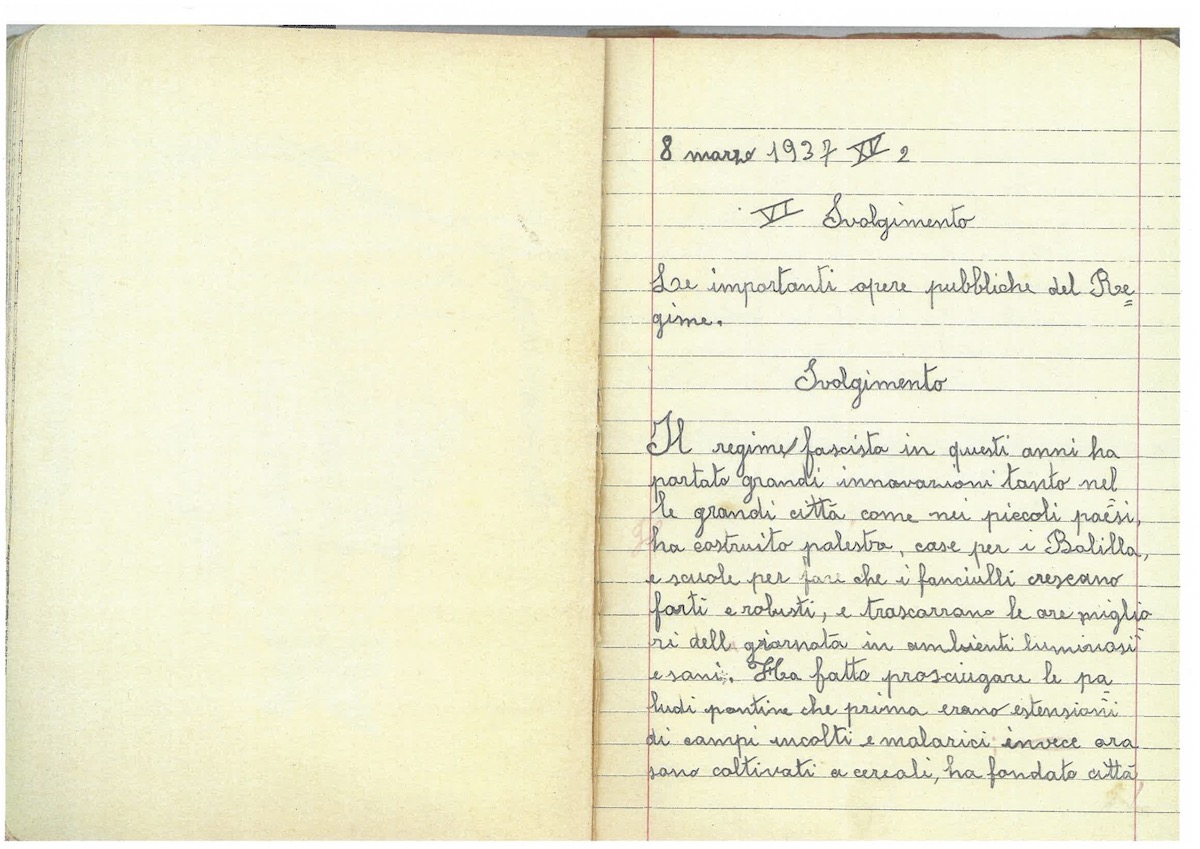 8 marzo 1937 XV 2
VI Svolgimento
Le importanti opere pubbliche del Re=
gime.
Svolgimento
Il regime fascista in questi anni ha
portato grandi innovazioni tanto nel
le grandi città come nei piccoli paesi,
ha costruito palestra, case per i Balilla,
e scuole per fare che i fanciulli crescano
forti e robusti, e trascorrano le ore miglio
ri dell giornata in ambienti luminosi
e sani. Ha fatto prosciugare le pa
ludi pontine che prima erano estensioni
di campi incolti e malarici invece ora
sono coltivati a cereali, ha fondato città